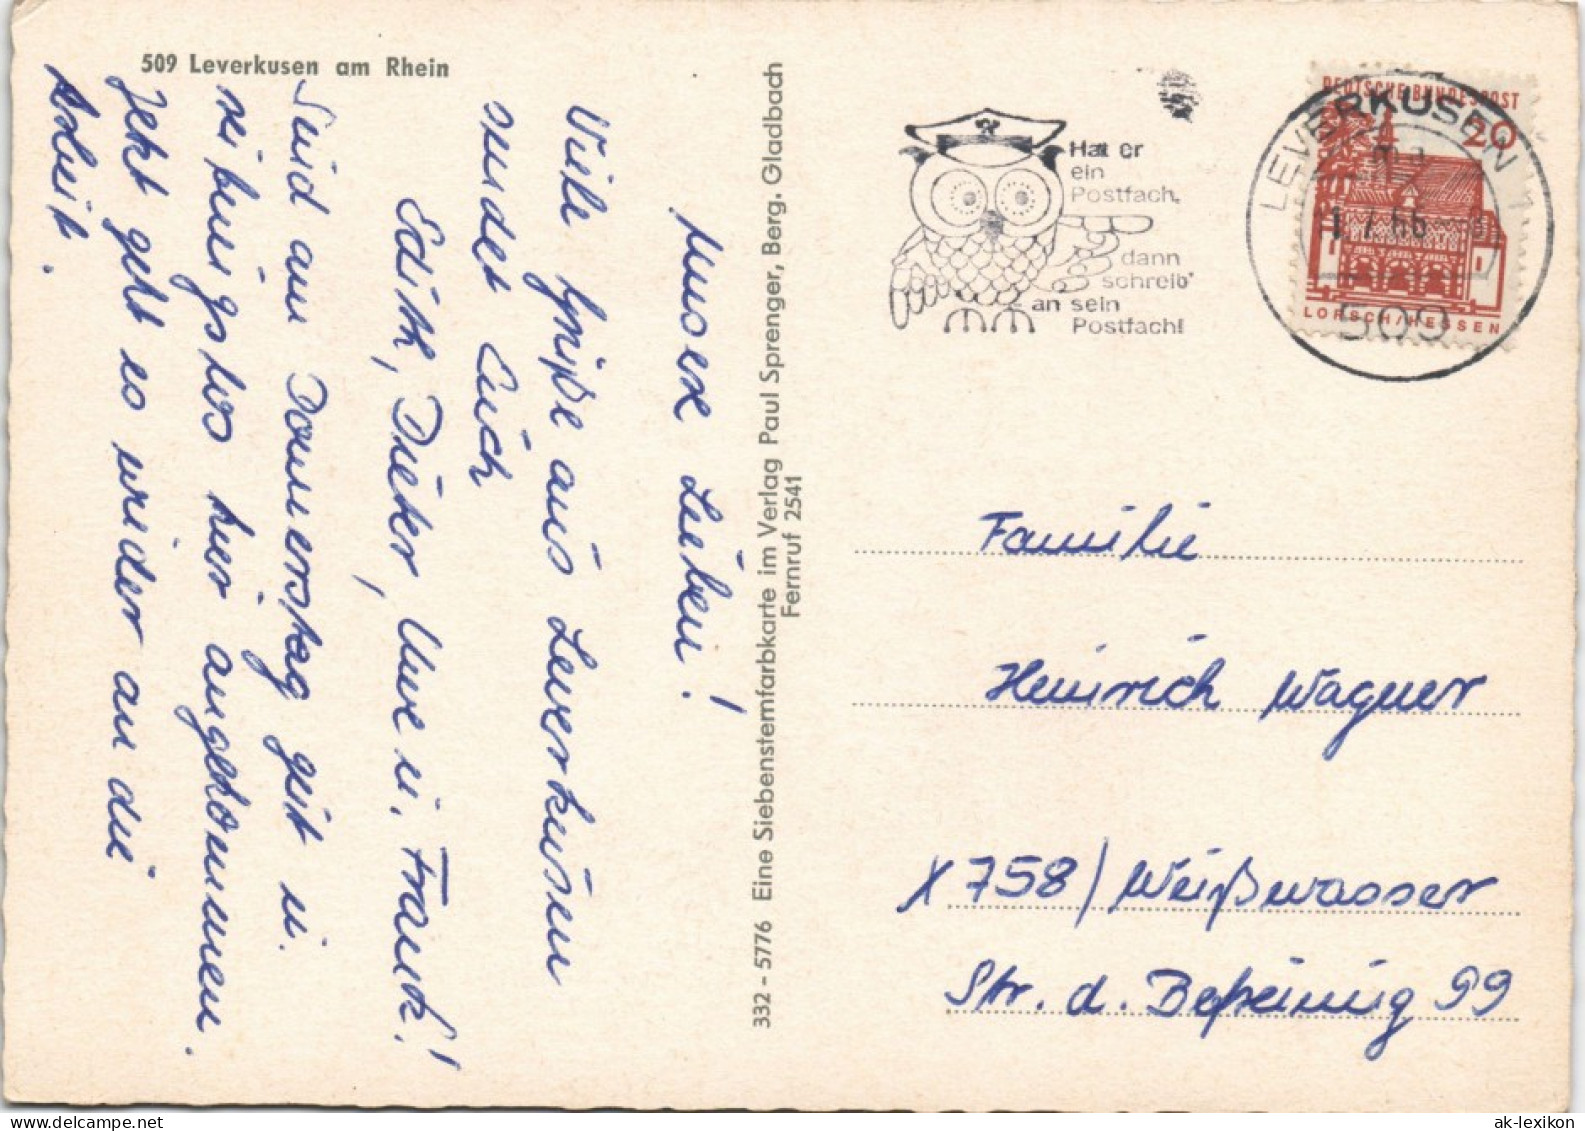 509 Leverkusen am Rhein
Hat er
ein
Postfach,
dann
schreib'
an sein
Postfach!
LEVERKUSEN 1
509
DEUTSCHE BUNDESPOST
20
LORSCH/HESSEN
Lieben!
Viele Grüße aus Leverkusen
sendet Euch
Edith, Dieter, Uwe u. Frank!
Sind am Donnerstag gut u.
reibungslos hier angekommen.
Jetzt geht es wieder an die
Arbeit.
332 - 5776 Eine Siebensternfarbkarte im Verlag Paul Sprenger, Berg. Gladbach
Fernruf 2541
Familie
Heinrich Wagner
X 758 / Weißwasser
Str. d. Befreiung 99
ak-lexikon